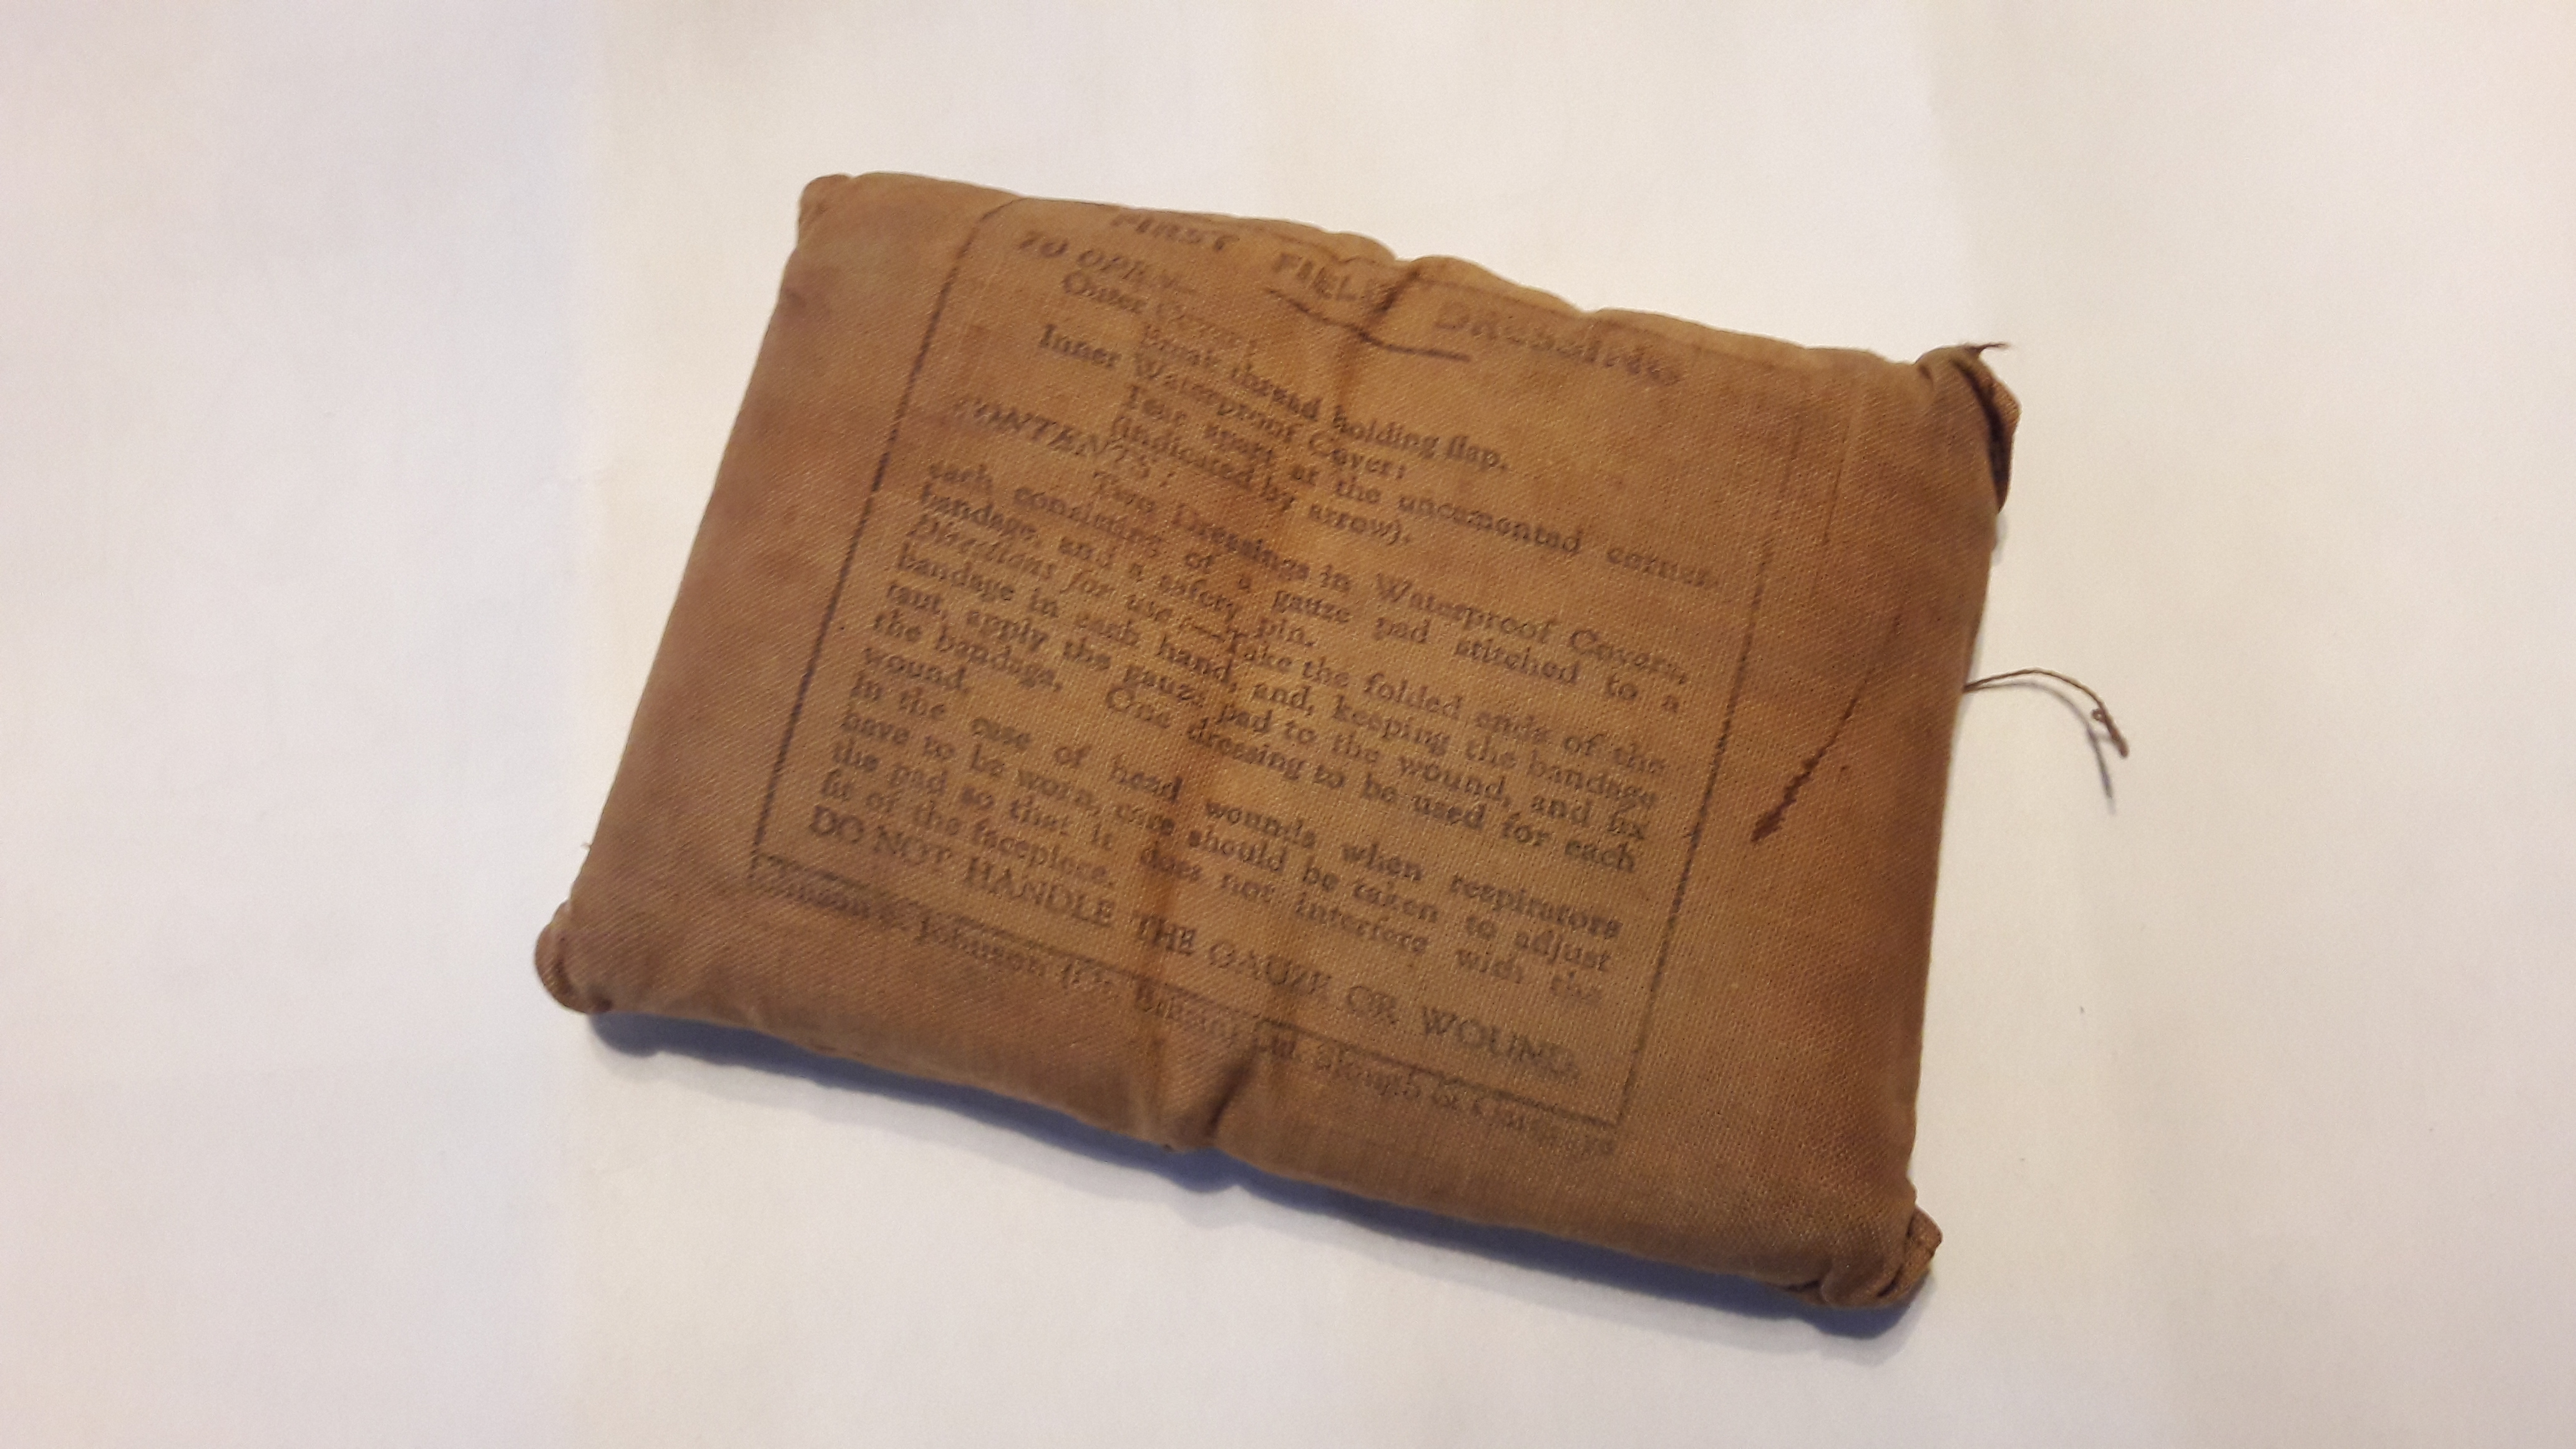 FIRST FIELD DRESSING
TO OPEN
Outer Cover:
Break thread holding flap.
Inner Waterproof Cover:
Tear apart at the uncemented corner
(indicated by arrow).
CONTENTS:
Two Dressings in Waterproof Covers,
each consisting of a gauze pad stitched to a
bandage, and a safety pin.
Directions for use:—Take the folded ends of the
bandage in each hand, and, keeping the bandage
taut, apply the gauze pad to the wound, and fix
the bandage. One dressing to be used for each
wound.
In the case of head wounds when respirators
have to be worn, care should be taken to adjust
the pad so that it does not interfere with the
fit of the facepiece.
DO NOT HANDLE THE GAUZE OR WOUND.
Johnson & Johnson (Gt. Britain) Ltd. Slough &